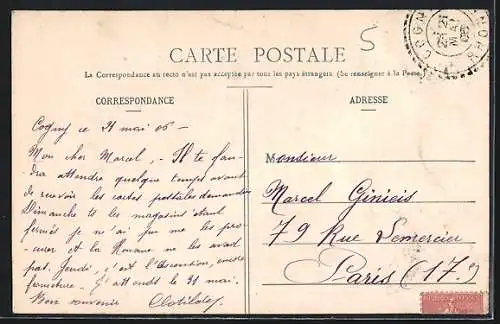 CARTE POSTALE
La Correspondance au recto n'est pas acceptée par tous les pays étrangers (Se renseigner à la Poste.)
CORRESPONDANCE
ADRESSE
5
COGN
21 mai 06 —
Mon cher Marcel, — Il te fau-
dra attendre quelque temps avant
de recevoir les cartes postales demandées
Dimanche ts les magasins étant
fermés je n'ai pu me les pro-
curer et la Rouane ne les avait
pas. Jeudi, c'est l'Ascension, encore
fermeture. J'attends le 31 mai.
Bon souvenir Clotilde
Monsieur
Marcel
79 Rue Lemercier
Paris (17.e)